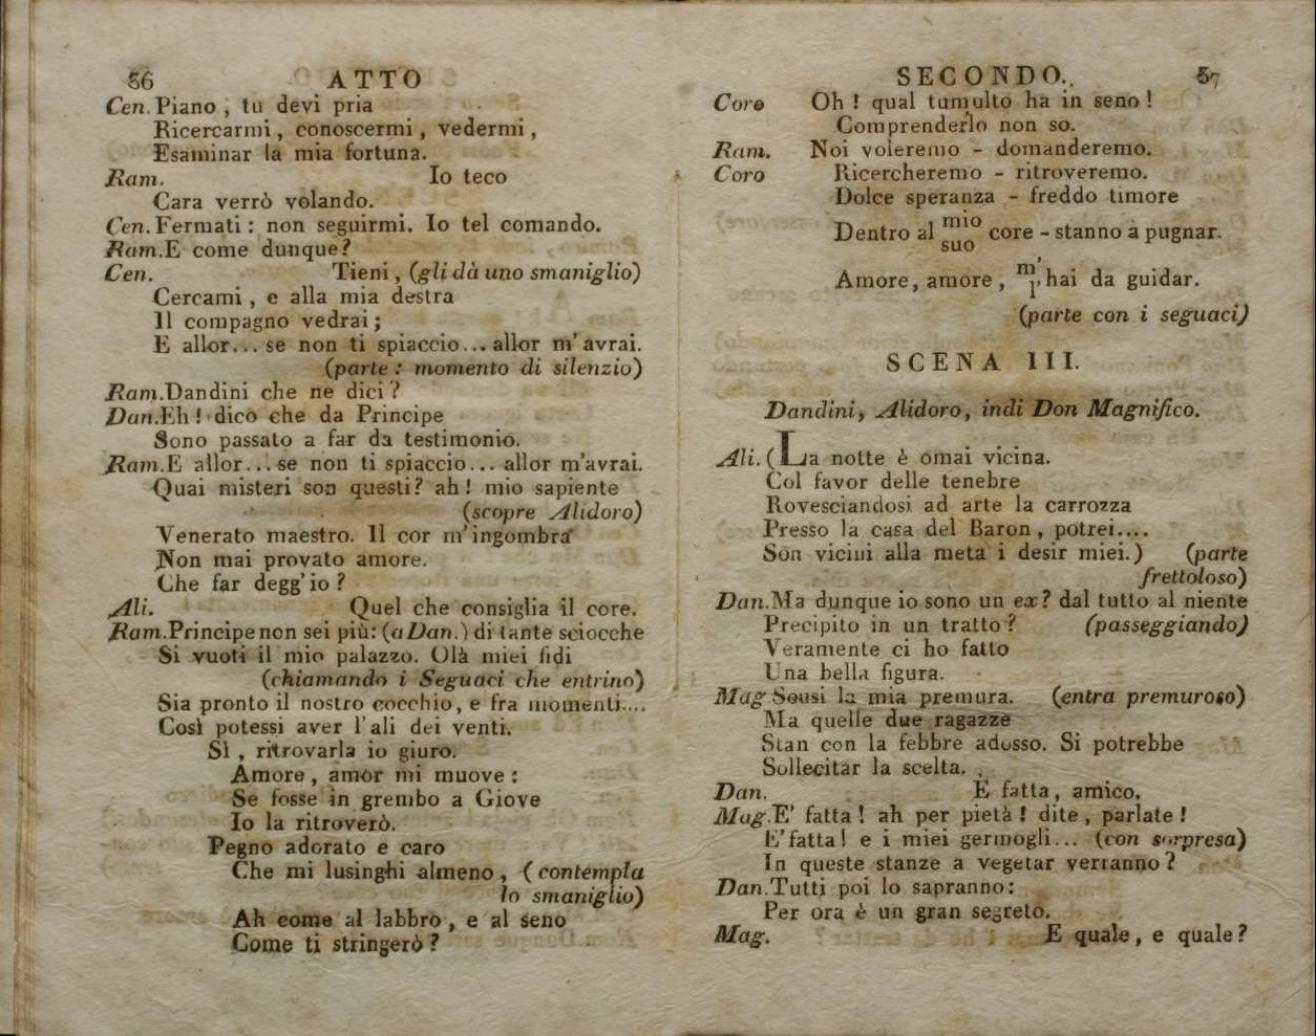 56 ATTO
Cen. Piano, tu devi pria
Ricercarmi, conoscermi, vedermi,
Esaminar la mia fortuna.
Ram. Io teco
Cara verrò volando.
Cen. Fermati: non seguirmi. Io tel comando.
Ram. E come dunque?
Cen. Tieni, (gli dà uno smaniglio)
Cercami, e alla mia destra
Il compagno vedrai;
E allor... se non ti spiaccio... allor m'avrai.
(parte: momento di silenzio)
Ram. Dandini che ne dici?
Dan. Eh! dico che da Principe
Sono passato a far da testimonio.
Ram. E allor... se non ti spiaccio... allor m'avrai.
Quai misteri son questi? ah! mio sapiente
(scopre Alidoro)
Venerato maestro. Il cor m'ingombra
Non mai provato amore.
Che far degg'io?
Ali. Quel che consiglia il core.
Ram. Principe non sei più: (a Dan.) di tante sciocche
Si vuoti il mio palazzo. Olà miei fidi
(chiamando i Seguaci che entrino)
Sia pronto il nostro cocchio, e fra momenti....
Così potessi aver l'ali dei venti.
Sì, ritrovarla io giuro.
Amore, amor mi muove:
Se fosse in grembo a Giove
Io la ritroverò.
Pegno adorato e caro
Che mi lusinghi almeno, (contempla
lo smaniglio)
Ah come al labbro, e al seno
Come ti stringerò?
SECONDO. 57
Coro Oh! qual tumulto ha in seno!
Comprenderlo non so.
Ram. Noi voleremo - domanderemo.
Coro Ricercheremo - ritroveremo.
Dolce speranza - freddo timore
Dentro al mio/suo core - stanno a pugnar.
Amore, amore, m'/l' hai da guidar.
(parte con i seguaci)
SCENA III.
Dandini, Alidoro, indi Don Magnifico.
Ali. (La notte è omai vicina.
Col favor delle tenebre
Rovesciandosi ad arte la carrozza
Presso la casa del Baron, potrei....
Son vicini alla meta i desir miei.) (parte
frettoloso)
Dan. Ma dunque io sono un ex? dal tutto al niente
Precipito in un tratto? (passeggiando)
Veramente ci ho fatto
Una bella figura.
Mag Scusi la mia premura. (entra premuroso)
Ma quelle due ragazze
Stan con la febbre adosso. Si potrebbe
Sollecitar la scelta.
Dan. E fatta, amico.
Mag. E' fatta! ah per pietà! dite, parlate!
E' fatta! e i miei germogli... (con sorpresa)
In queste stanze a vegetar verranno?
Dan. Tutti poi lo sapranno:
Per ora è un gran segreto.
Mag. E quale, e quale?